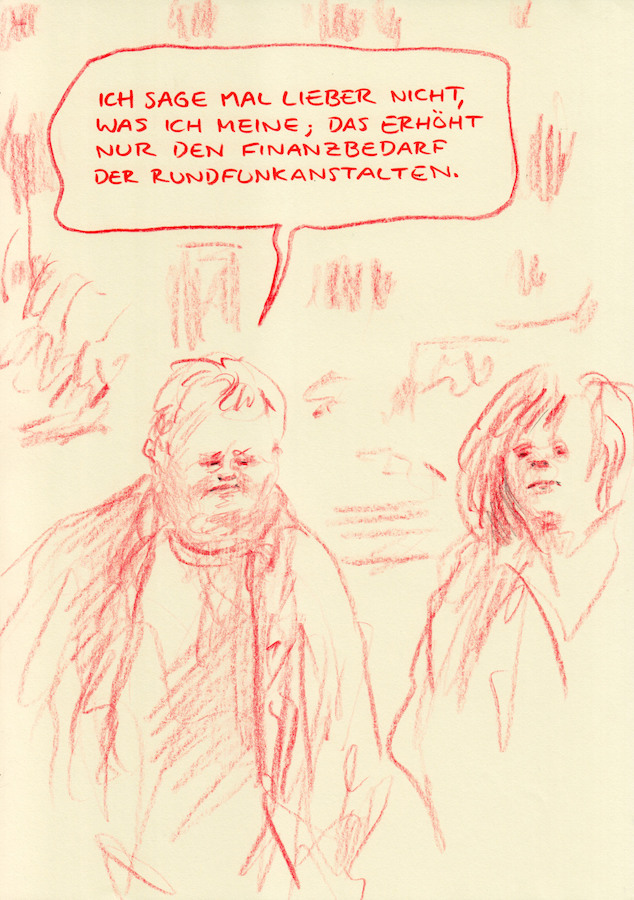 ICH SAGE MAL LIEBER NICHT,
WAS ICH MEINE; DAS ERHÖHT
NUR DEN FINANZBEDARF
DER RUNDFUNKANSTALTEN.